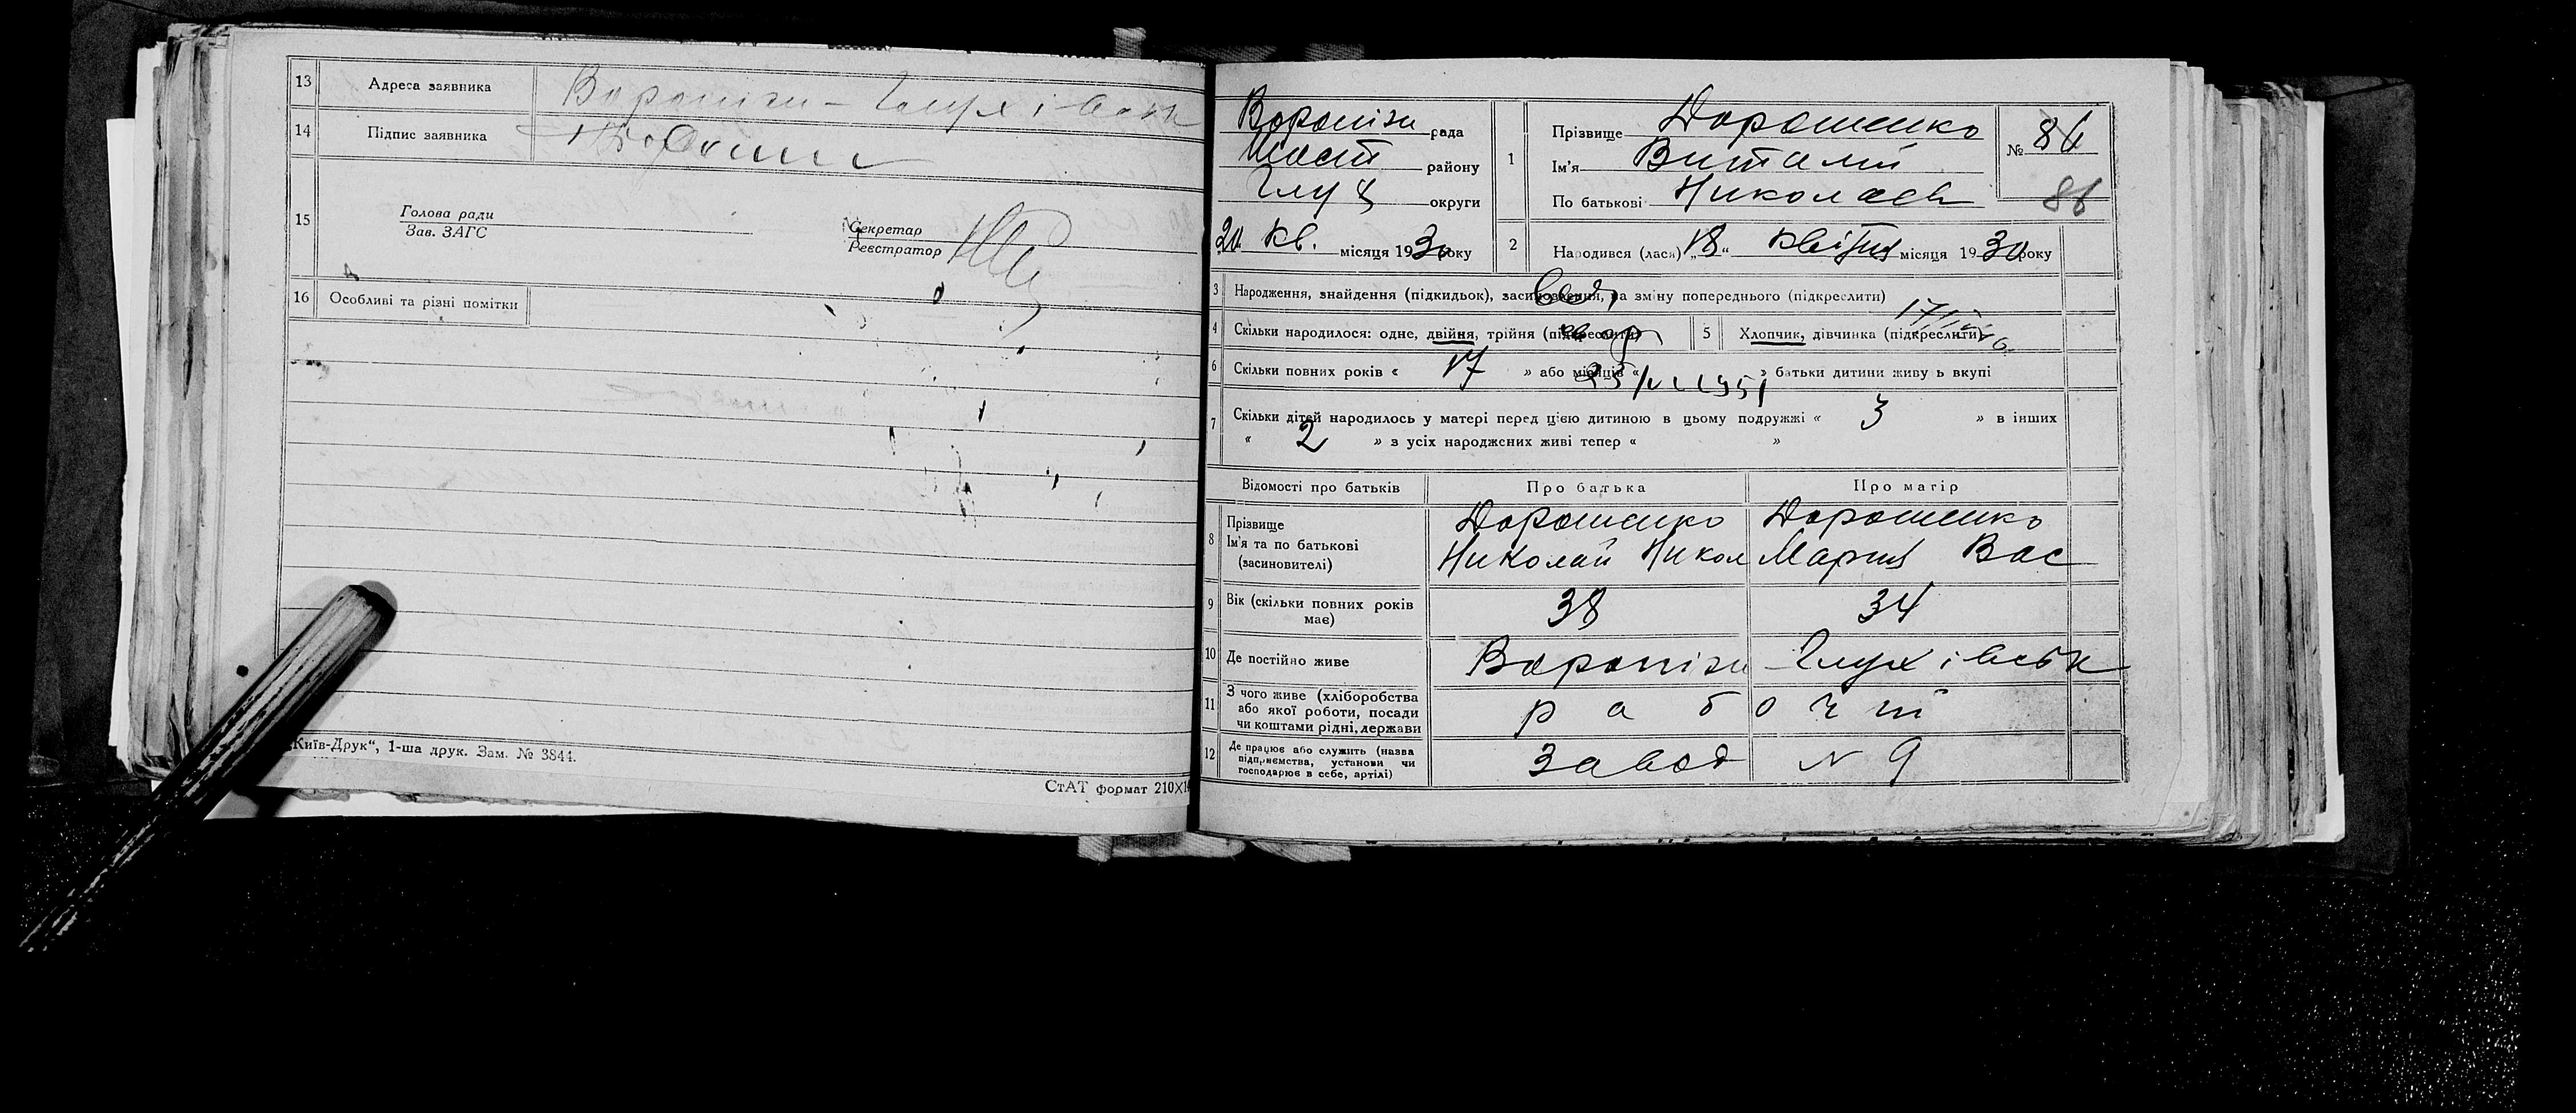 13 Адреса заявника Вороніжи - Глухівськ
14 Підпис заявника
15 Голова ради
Зав. ЗАГС
Секретар
Реєстратор
16 Особливі та різні помітки
„Київ-Друк“, 1-ша друк. Зам. № 3844.
СтАТ формат 210×14
Вороніжи рада
Шост району
Глух округи
20 кв. місяця 1930 року
1 Прізвище Дорошенко
Ім'я Виталий
По батькові Николаев
№ 86
86
2 Народився (лася) „18“ квітня місяця 1930 року
3 Народження, знайдення (підкидьок), засиновлення, на зміну попереднього (підкреслити)
4 Скільки народилося: одне, двійня, трійня (підкреслити)
5 Хлопчик, дівчинка (підкреслити)
6 Скільки повних років « 17 » або місяців « » батьки дитини живуть вкупі
7 Скільки дітей народилось у матері перед цією дитиною в цьому подружжі « 3 » в інших
« 2 » з усіх народжених живі тепер « »
Відомості про батьків Про батька Про матір
8 Прізвище Дорошенко Дорошенко
Ім'я та по батькові Николай Никол Мария Вас
(засиновителі)
9 Вік (скільки повних років має) 38 34
10 Де постійно живе Вороніжи - Глухівськ
11 З чого живе (хліборобства
або якої роботи, посади рабочий
чи коштами рідні, держави
12 Де працює або служить (назва
підприємства, установи чи Завод N 9
господарює в себе, артілі)